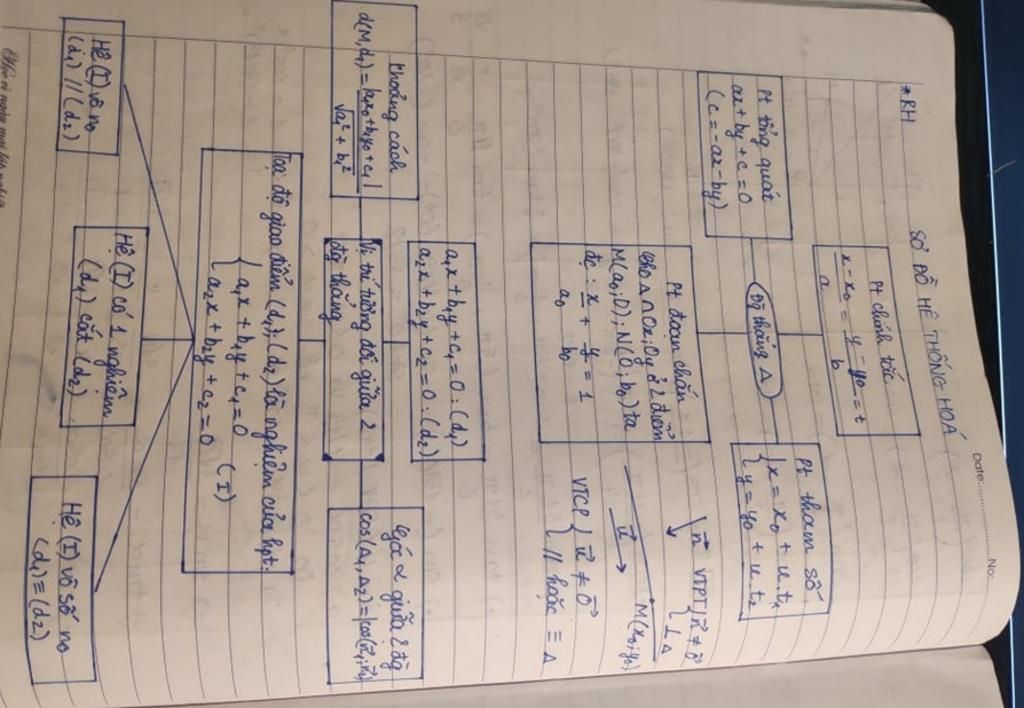 Date:
No:
*RH
SƠ ĐỒ HỆ THỐNG HOÁ
Pt chính tắc
x-x₀/a = y-y₀/b = t
Pt tổng quát
ax + by + c = 0
(c = -ax - by)
Đg thẳng Δ
Pt tham số
{ x = x₀ + u.t₁
{ y = y₀ + u.t₂
Pt đoạn chắn
cho Δ ∩ Ox; Oy ở 2 điểm
M(a₀;0); N(0;b₀) ta
đc: x/a₀ + y/b₀ = 1
n⃗ VTPT { n⃗ ≠ 0⃗
{ ⊥ Δ
M(x₀;y₀)
u⃗
VTCP { u⃗ ≠ 0⃗
{ // hoặc ≡ Δ
a₁x + b₁y + c₁ = 0 : (d₁)
a₂x + b₂y + c₂ = 0 : (d₂)
Khoảng cách
d(M,d₁) = |a₁x₀ + b₁y₀ + c₁| / √a₁² + b₁²
Vị trí tương đối giữa 2
đg thẳng
Góc α giữa 2 đg
cos(Δ₁,Δ₂) = |cos(n⃗₁;n⃗₂)|
Tọa độ giao điểm (d₁); (d₂) là nghiệm của hpt:
{ a₁x + b₁y + c₁ = 0
{ a₂x + b₂y + c₂ = 0
(I)
Hệ (I) vô no
(d₁) // (d₂)
Hệ (I) có 1 nghiệm
(d₁) cắt (d₂)
Hệ (I) vô số no
(d₁) ≡ (d₂)